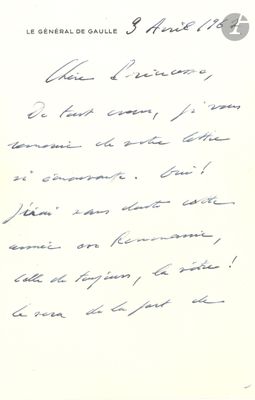 LE GÉNÉRAL DE GAULLE
3 Avril 196
Chère Princesse,
De tout cœur, je vous
remercie de votre lettre
si émouvante. Oui!
j'irai sans doute cette
année en Roumanie,
celle de toujours, la vôtre!
Ce sera de la part de